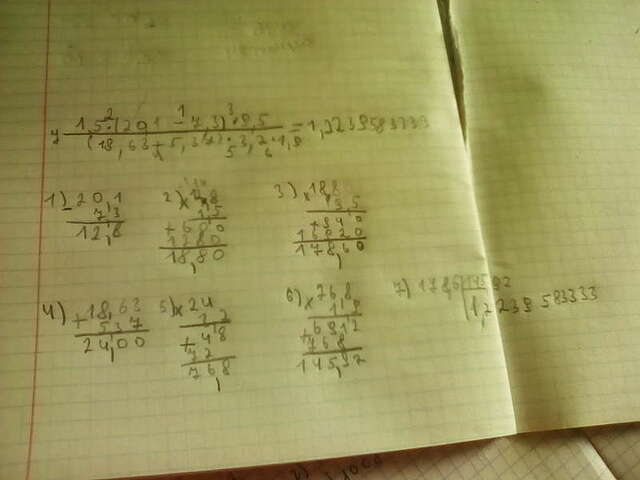 1,5·(20,1 - 7,3)·9,5
(18,63 + 5,37)·3,2·1,9
= 1,2239583333
1)
- 20,1
7,3
12,8
2)
× 12,8
1,5
+ 600
1280
18,80
3)
× 18,8
9,5
+ 940
16920
178,60
4)
+ 18,63
5,37
24,00
5)
× 24
3,2
+ 48
72
76,8
6)
× 76,8
1,9
+ 6912
768
145,92
7) 178,6 145,92
1,2239583333